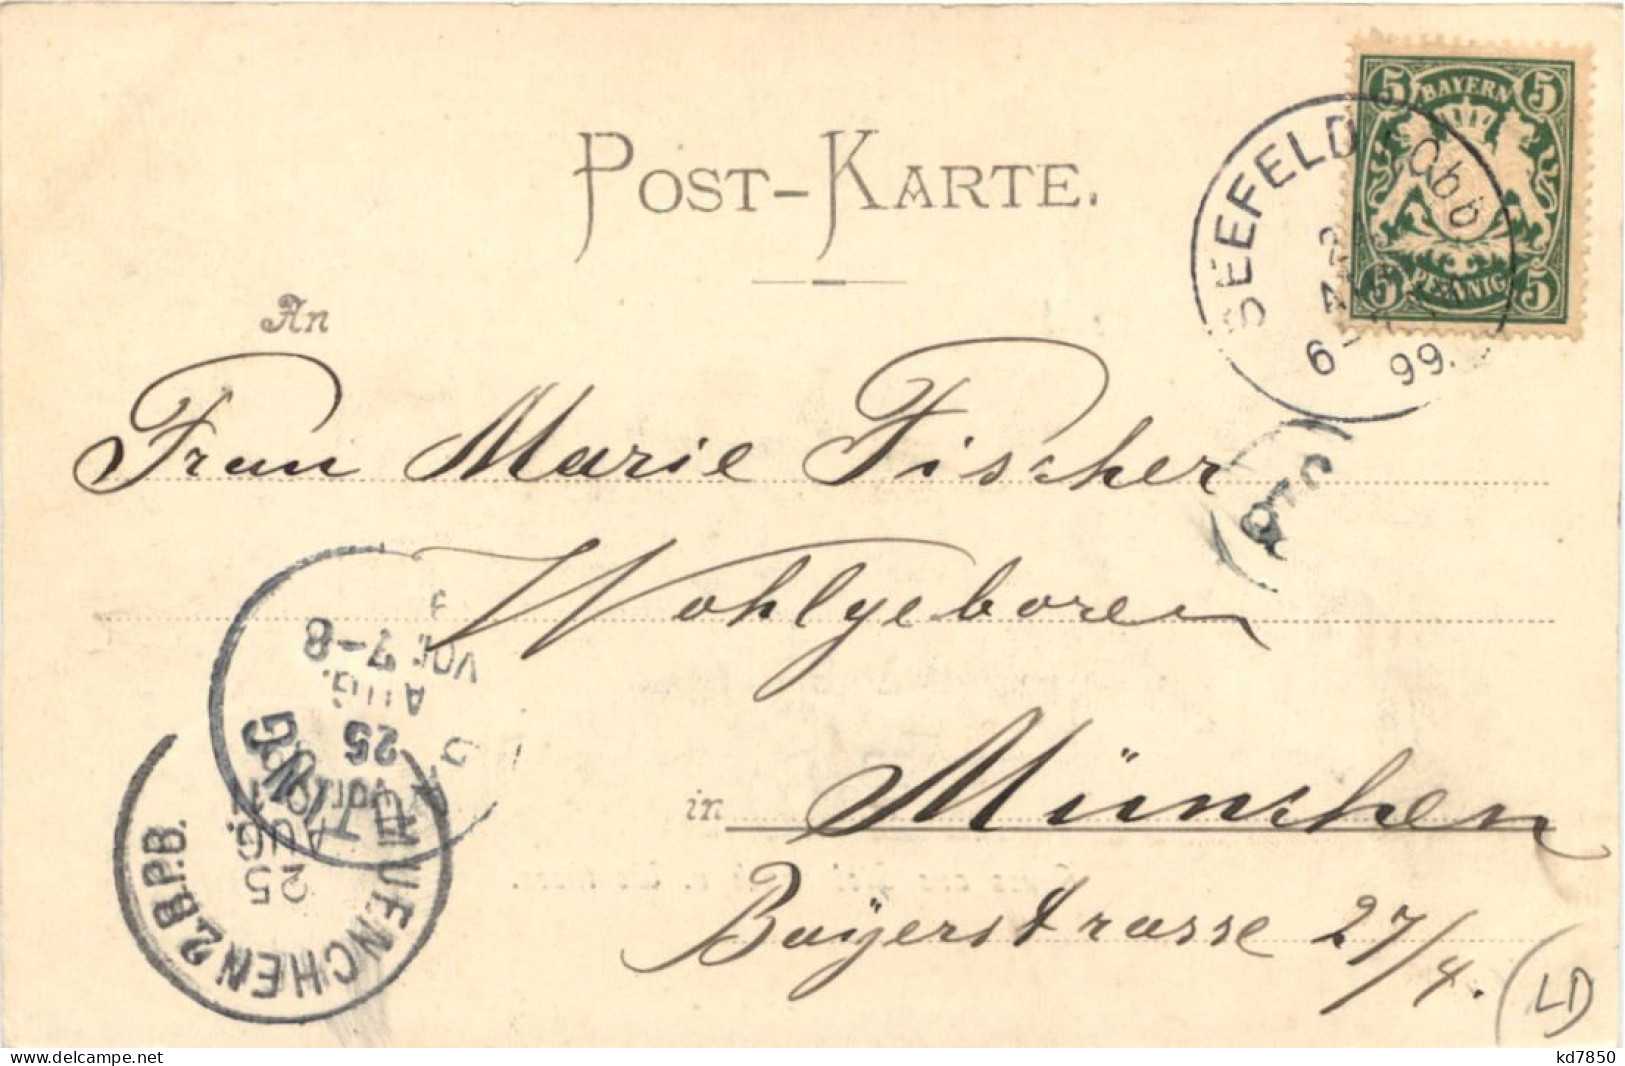 5 BAYERN 5
5 PFENNIG 5
SEEFELD Obb
AUG
6-7
99.
POST-KARTE.
An
Frau Marie Fischer
Wohlgeboren
in München
Bayerstrasse 27/4.
VOR 7-8
AUG.
25
MUENCHEN 2.B.P.B.
25
AUG.
LD
www.delcampe.net
kd7850